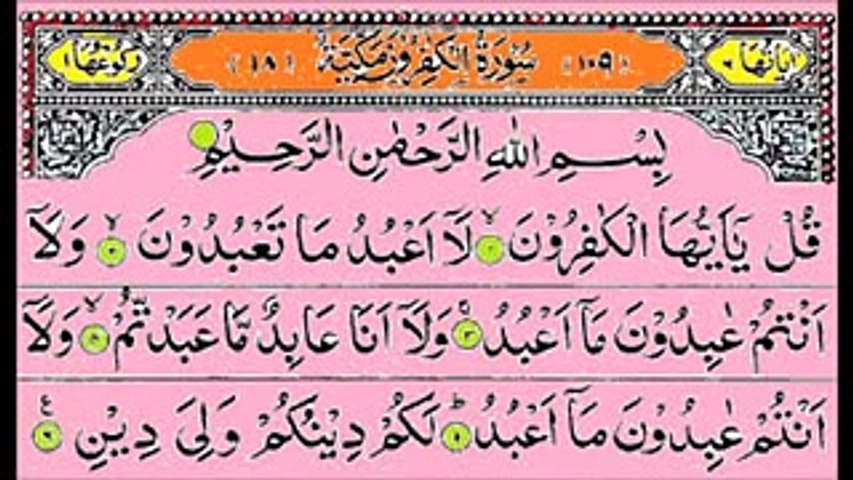 اٰيَاتُهَا ٦ (١٠٩) سُوْرَةُ الْكٰفِرُوْنَ مَكِّيَّةٌ (١٨) رُكُوْعُهَا ١
بِسْمِ اللّٰهِ الرَّحْمٰنِ الرَّحِيْمِ
قُلْ يٰٓاَيُّهَا الْكٰفِرُوْنَ ۙ لَآ اَعْبُدُ مَا تَعْبُدُوْنَ ۙ وَلَآ
اَنْتُمْ عٰبِدُوْنَ مَآ اَعْبُدُ ۚ وَلَآ اَنَا عَابِدٌ مَّا عَبَدْتُّمْ ۙ وَلَآ
اَنْتُمْ عٰبِدُوْنَ مَآ اَعْبُدُ ؕ لَكُمْ دِيْنُكُمْ وَلِيَ دِيْنِ ع